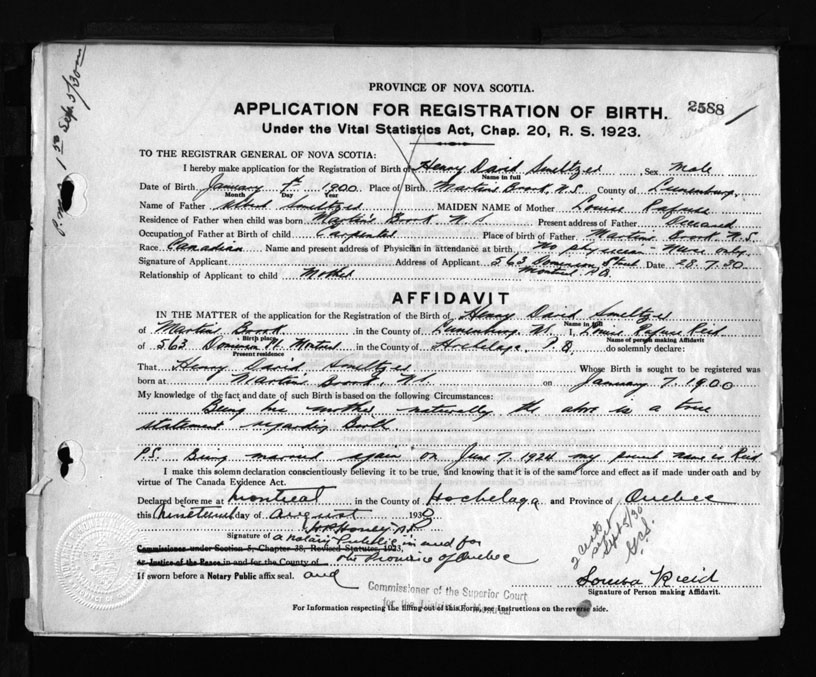 PROVINCE OF NOVA SCOTIA.
2588
APPLICATION FOR REGISTRATION OF BIRTH.
Under the Vital Statistics Act, Chap. 20, R. S. 1923.
TO THE REGISTRAR GENERAL OF NOVA SCOTIA:
I hereby make application for the Registration of Birth of Henry David Smeltzer Sex Male
Name in full
Date of Birth January 7 1900 Place of Birth Martins Brook, N.S. County of Lunenburg
Month Day Year
Name of Father Smeltzer MAIDEN NAME of Mother Louise Rafuse
Residence of Father when child was born Martins Brook N.S. Present address of Father Deceased
Occupation of Father at Birth of child Carpenter Place of birth of Father Martins Brook N.S.
Race Canadian Name and present address of Physician in attendance at birth No physician Nurse only
Signature of Applicant Address of Applicant 563 Dominion Street Date 28.7.30
Relationship of Applicant to child Mother Montreal, P.Q.
AFFIDAVIT
IN THE MATTER of the application for the Registration of the Birth of Henry David Smeltzer
Name in full
of Martins Brook in the County of Lunenburg I, Louise Rafuse Reid
Birth place Name of person making Affidavit
of 563 Dominion St. Montreal in the County of Hochelaga, P.Q. do solemnly declare:
Present residence
That Henry David Smeltzer Whose Birth is sought to be registered was
born at Martins Brook, on January 7. 1900
My knowledge of the fact and date of such Birth is based on the following Circumstances:
Being his mother naturally the above is a true
statement regarding Birth
P.S. Being married again on June 7. 1924 my present name is Reid
I make this solemn declaration conscientiously believing it to be true, and knowing that it is of the same force and effect as if made under oath and by
virtue of The Canada Evidence Act.
Declared before me at Montreal in the County of Hochelaga and Province of Quebec
this Nineteenth day of August 1930
Signature of a Notary Public in and for
Commissioner under Section 5, Chapter 38, Revised Statutes, 1923,
or Justice of the Peace in and for the County of the Province of Quebec
If sworn before a Notary Public affix seal. and
Commissioner of the Superior Court
for the
Louisa Reid
Signature of Person making Affidavit.
For Information respecting the filling out of this Form, see Instructions on the reverse side.
Sept 5/30